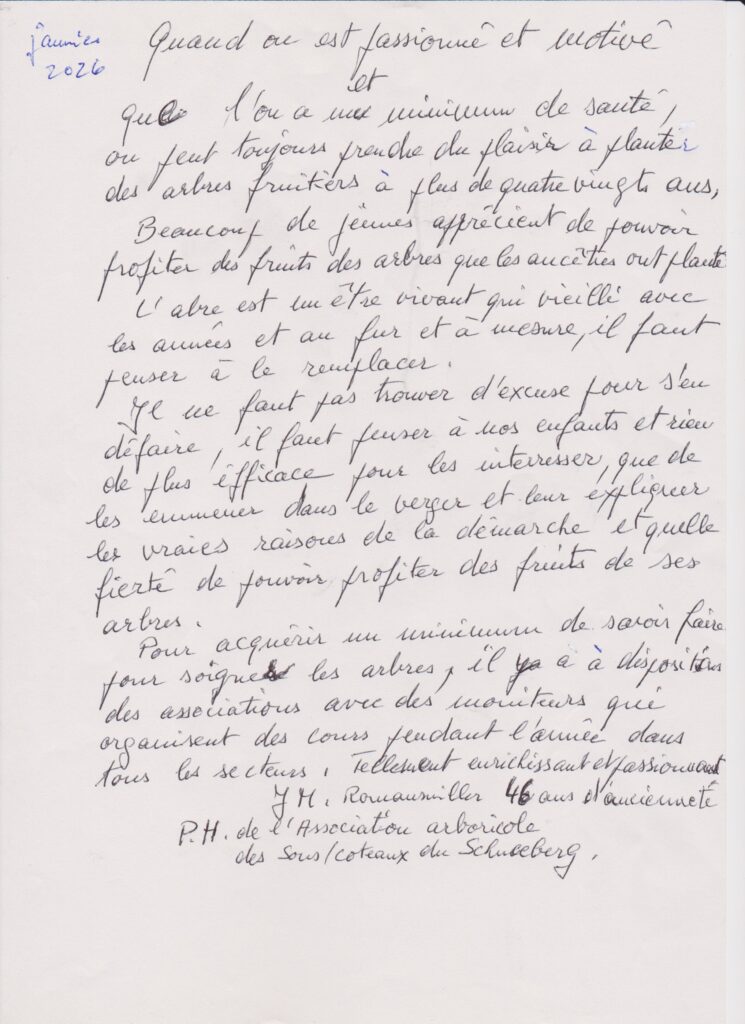 janvier
2026
Quand on est passionné et motivé
et
que l'on a un minimum de santé,
on peut toujours prendre du plaisir à planter
des arbres fruitiers à plus de quatre vingts ans,
Beaucoup de jeunes apprécient de pouvoir
profiter des fruits des arbres que les ancêtres ont planté
L'abre est un être vivant qui vieilli avec
les années et au fur et à mesure, il faut
penser à le remplacer.
Il ne faut pas trouver d'excuse pour s'en
défaire, il faut penser à nos enfants et rien
de plus éfficace pour les interresser, que de
les emmener dans le verger et leur expliquer
les vraies raisons de la démarche et quelle
fierté de pouvoir profiter des fruits de ses
arbres.
Pour acquérir un minimum de savoir faire
pour soigner les arbres, il y a à disposition
des associations avec des moniteurs qui
organisent des cours pendant l'année dans
tous les secteurs. Tellement enrichissant et passionnant
J M. Romanswiller 46 ans d'ancienneté
P.H. de l'Association arboricole
des Sous/coteaux du Schneeberg.